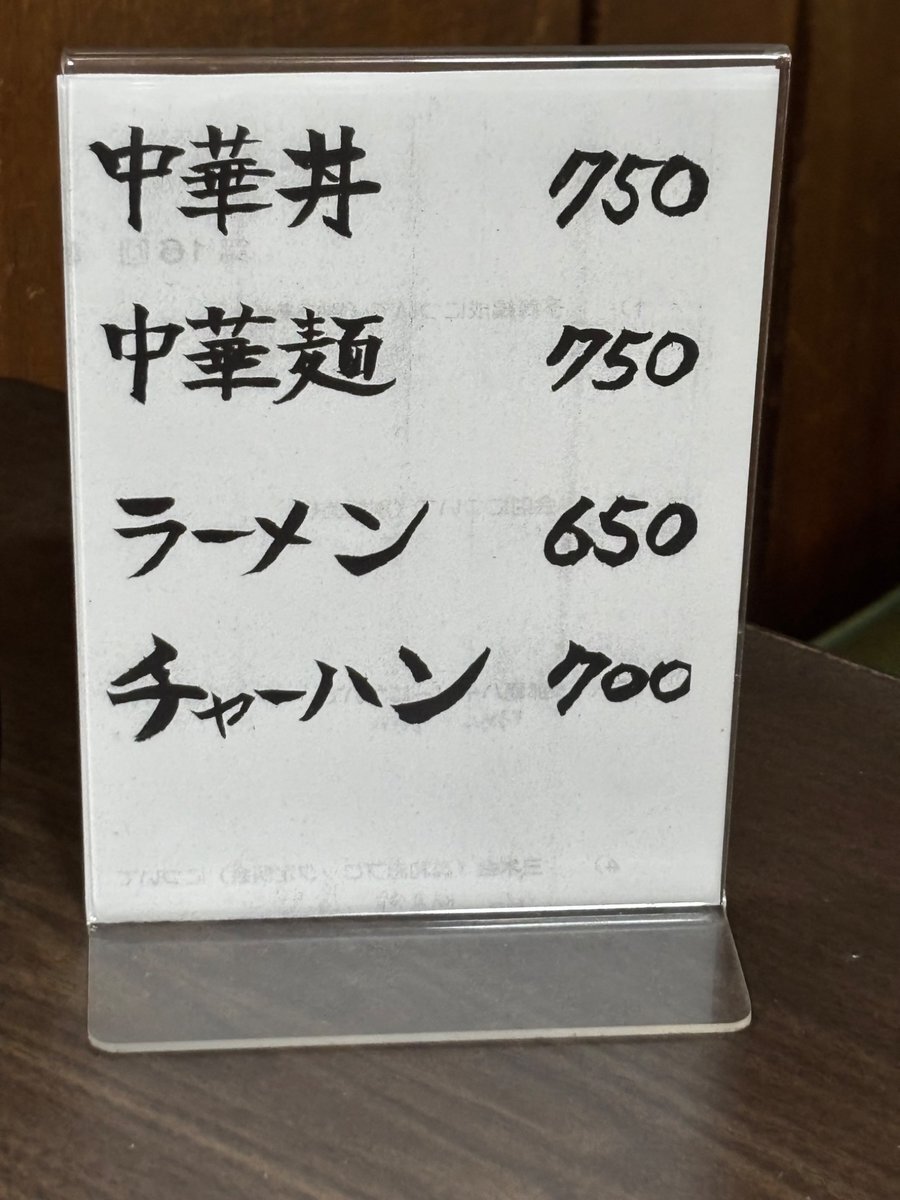 中華丼 750
中華麺 750
ラーメン 650
チャーハン 700